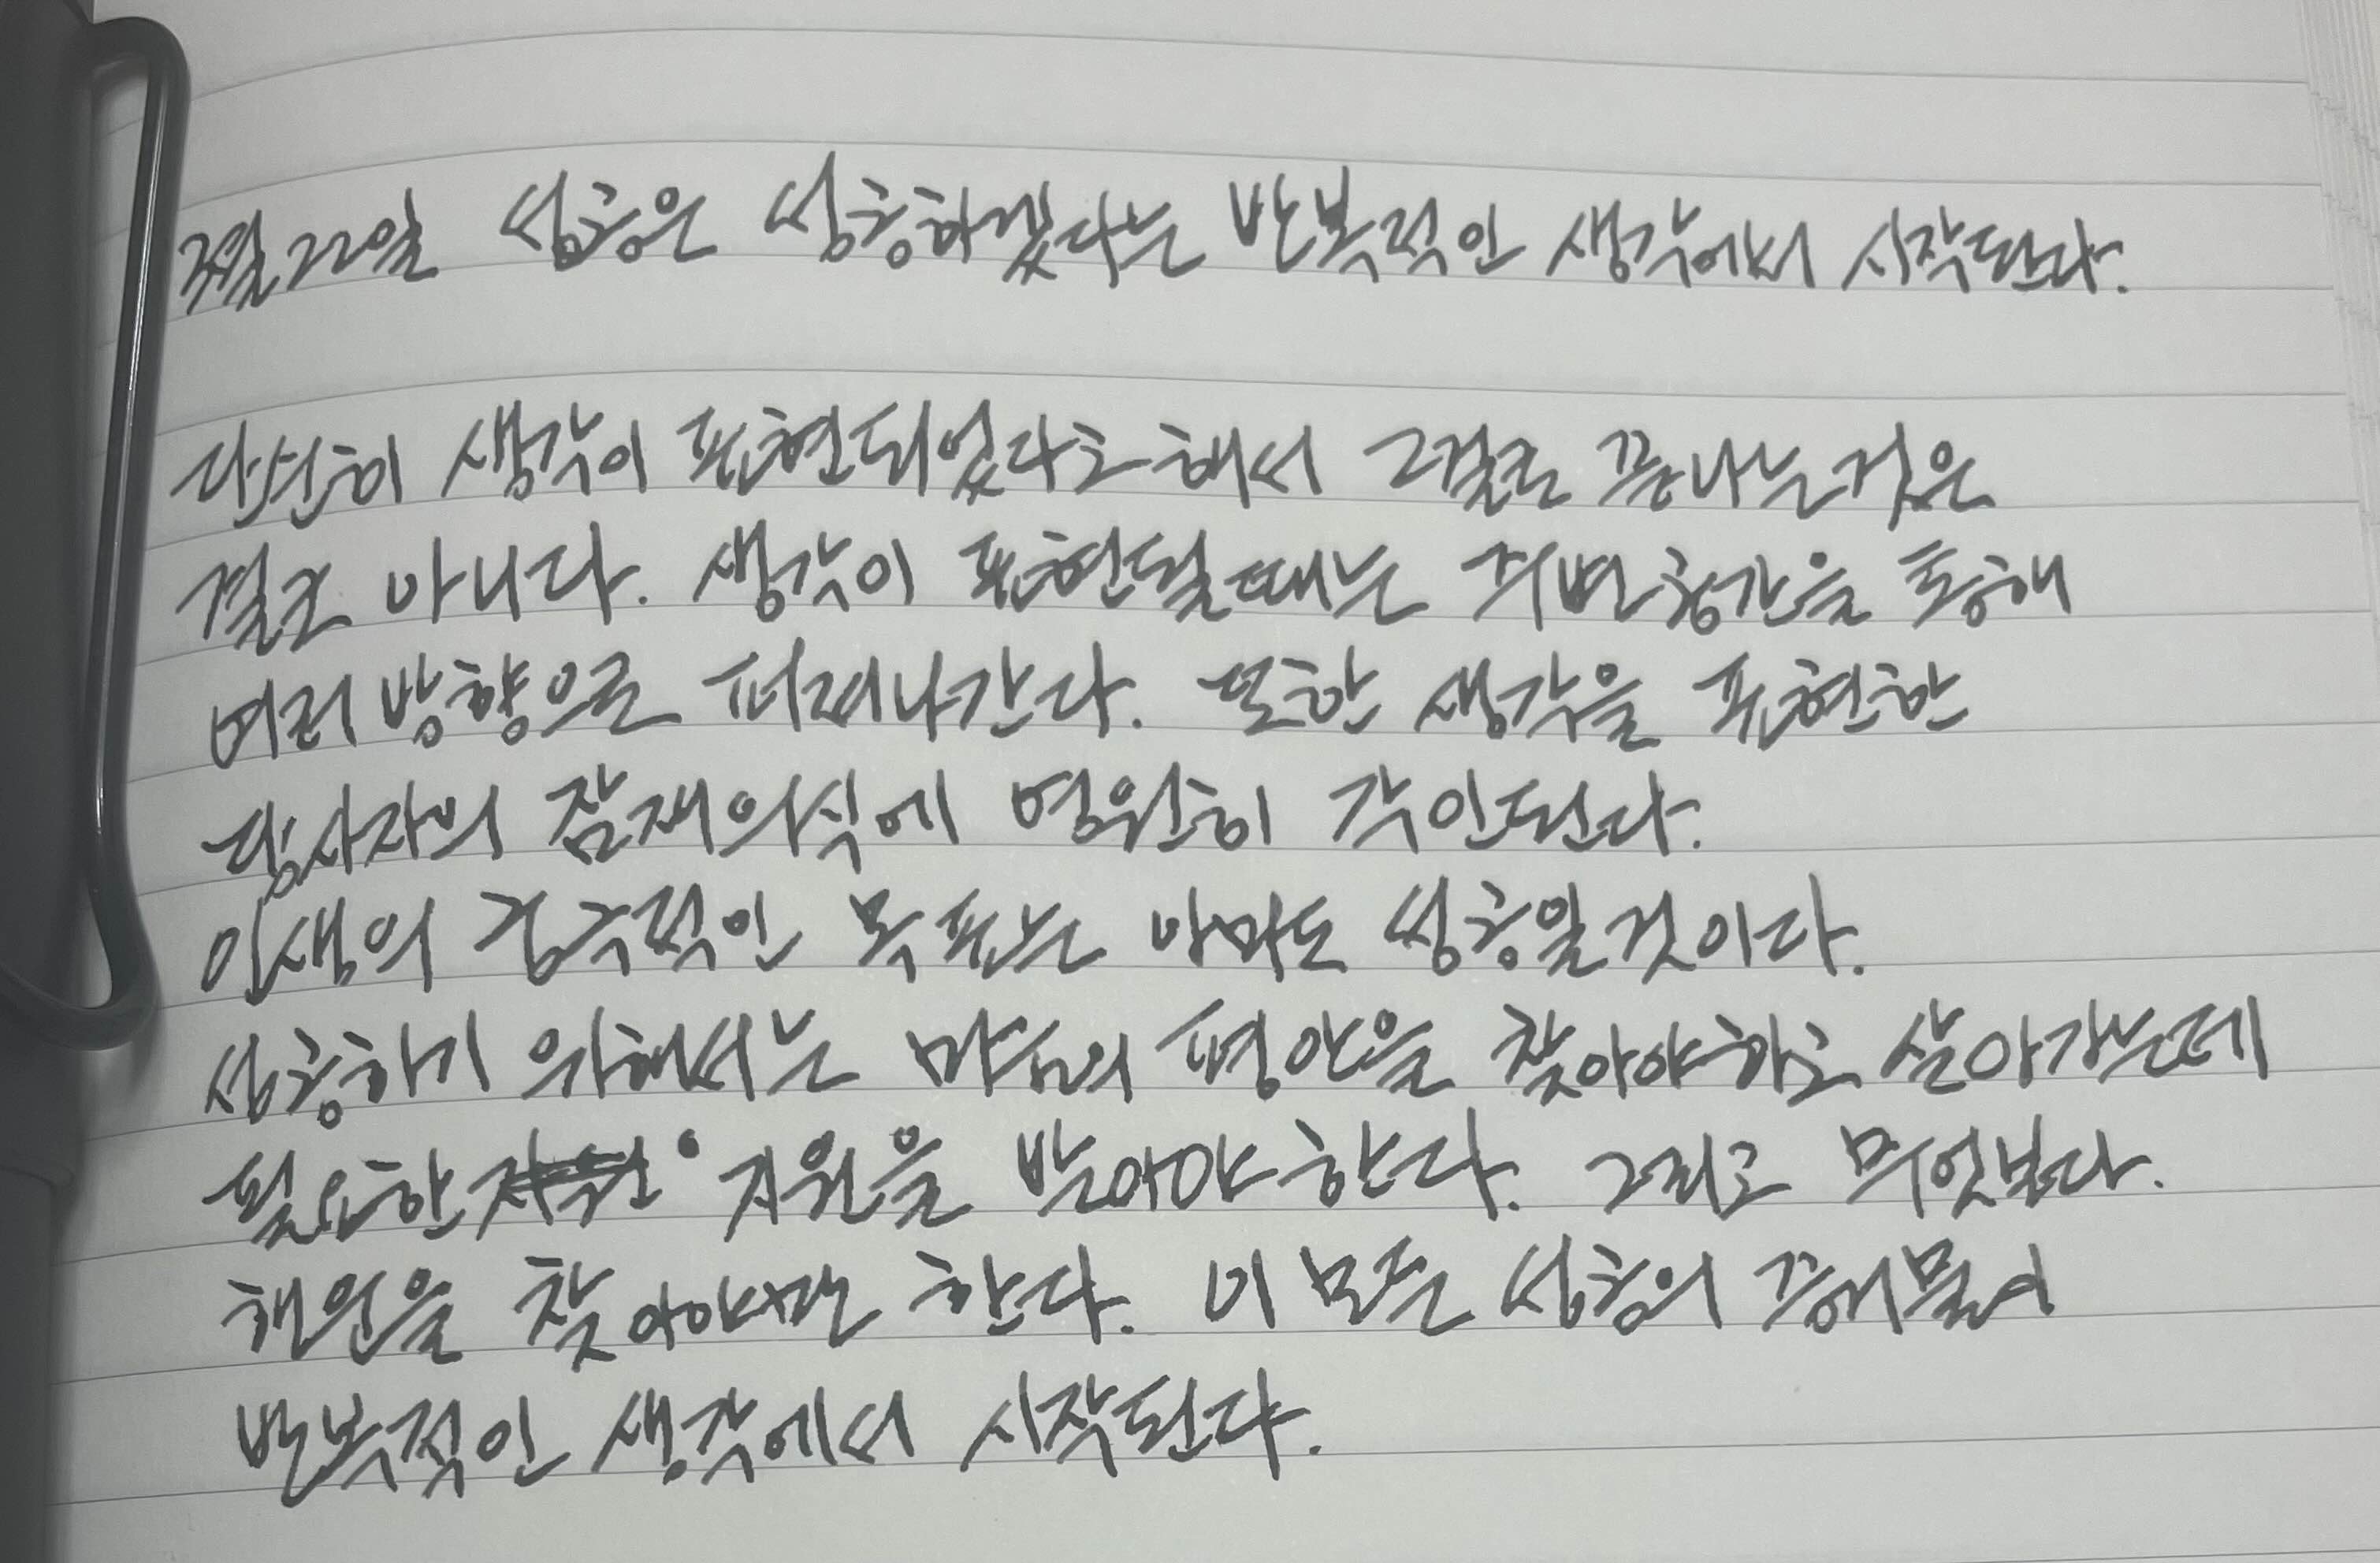 3월 22일 성공은 성공하겠다는 반복적인 생각에서 시작된다.
단순히 생각이 표현되었다고 해서 그걸로 끝나는것은
결코 아니다. 생각이 표현될때는 주변공간을 통해
여러 방향으로 퍼져나간다. 또한 생각을 표현한
당사자의 잠재의식에 영원히 각인된다.
인생의 궁극적인 목표는 아마도 성공일것이다.
성공하기 위해서는 마음의 평안을 찾아야하고 살아가는데
필요한 지원을 받아야 한다. 그리고 무엇보다.
행원을 찾아야만 한다. 이 모든 성공의
반복적인 생각에서 시작된다.